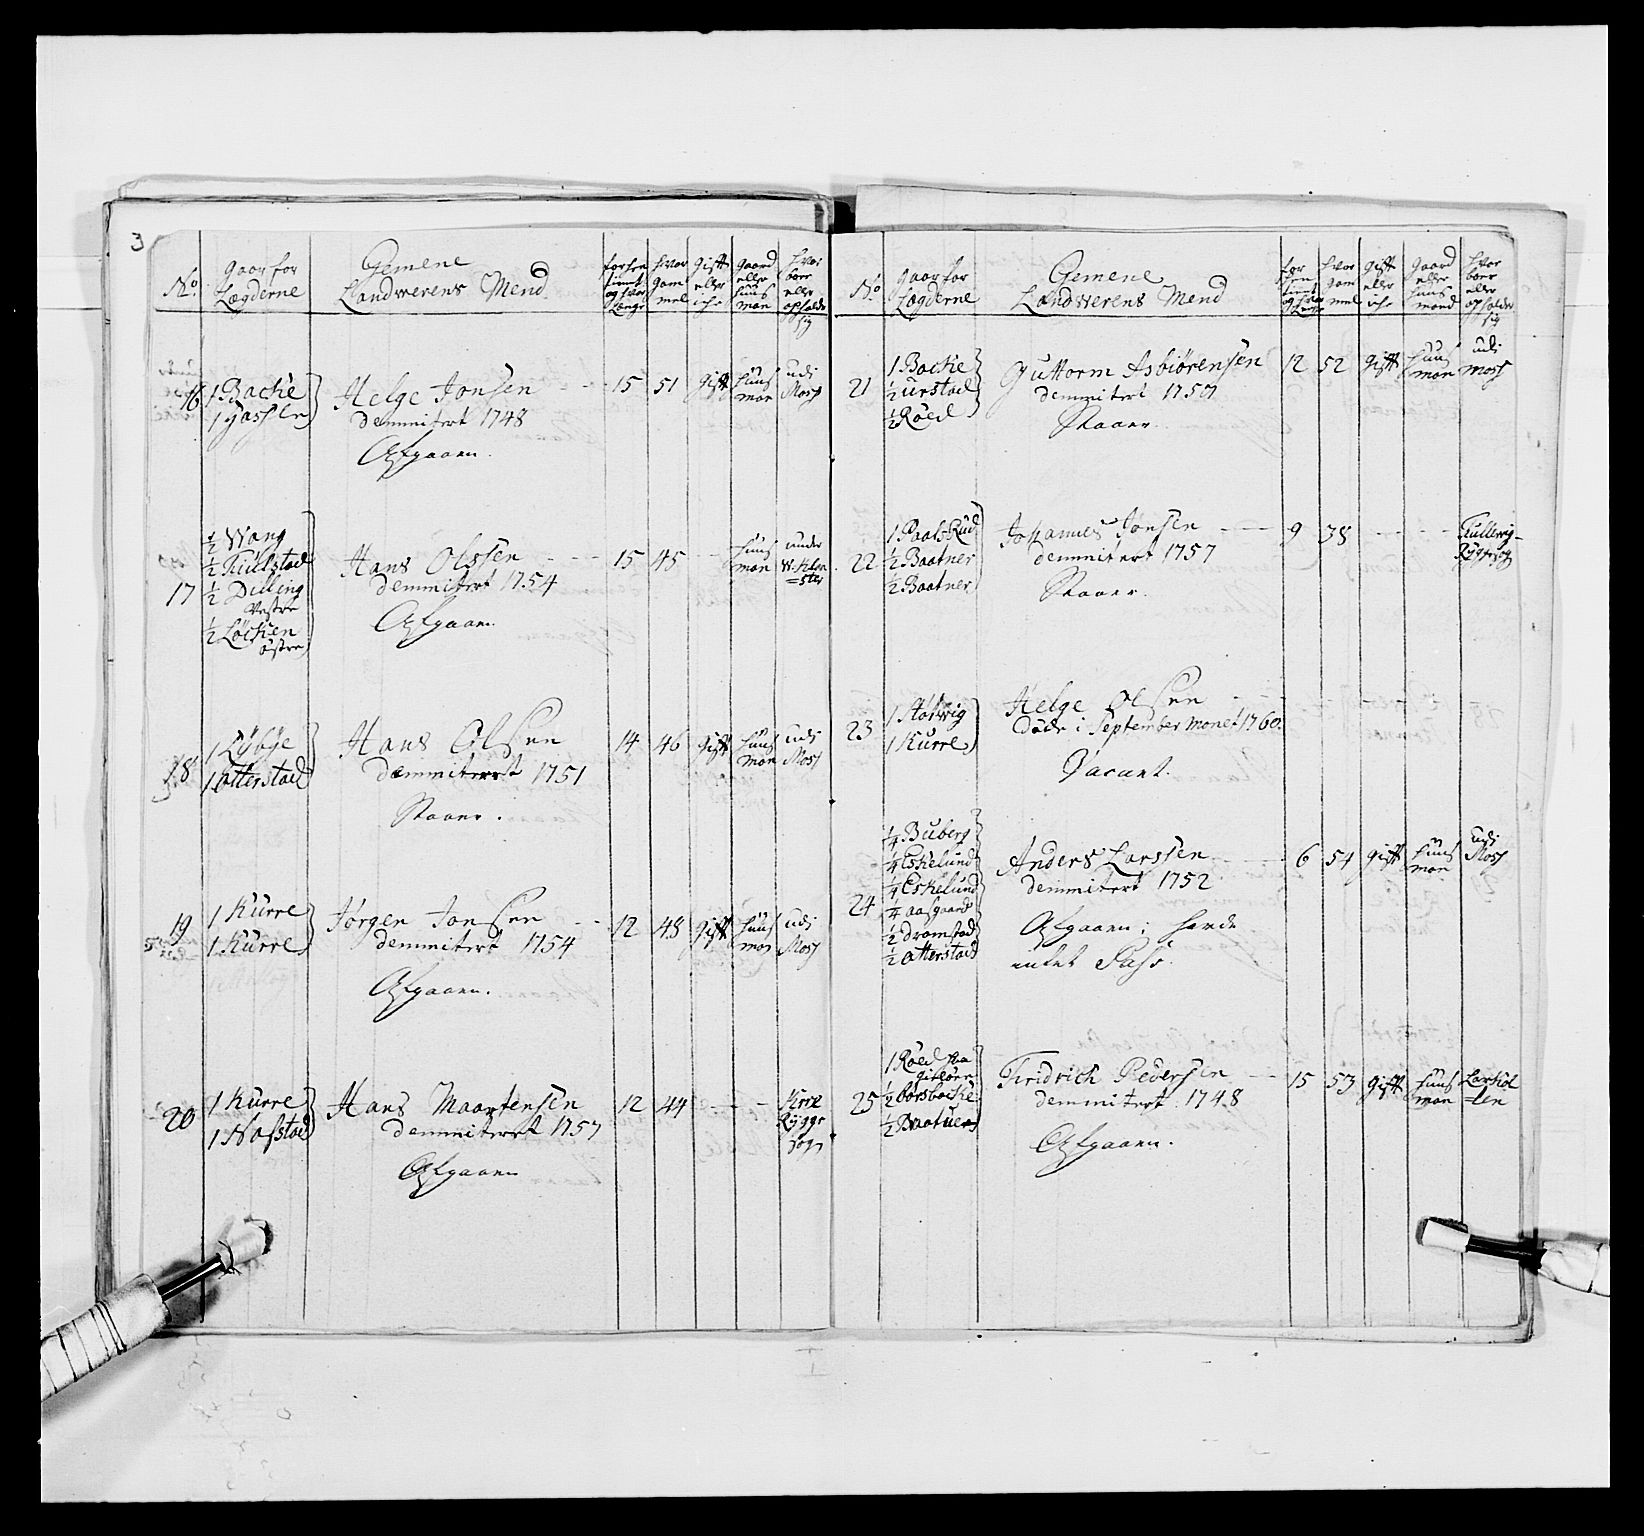 3
No.
gaar for
Lægderne
Gemene
Landwerens Mend
forhen
tient
og hvor
Lenge
hvor
gam
mel
gift
eller
iche
gaard
eller
huus
man
hvor
boer
eller
opholder
sig
16
1 Backe
1 Gasslen
Helge Jonsen
demmitert 1748
Afgaaen.
15 51 gift huus man udi Moss
17
½ Wang
½ Kiulstad
½ Dilling
Vestre
½ Løcken
østre
Hans Olssen
demmitert 1754
Afgaaen.
15 45 huus man under
18
1 Rybye
1 Atterstad
Hans Olsen
Dæmmiterrt 1751
Staaer.
14 46 gift huus man udi Moss
19
1 Kurre
1 Kurre
Jørgen Jonsen
demmitert 1754
Afgaaen.
12 48 gift huus man udi Moss
20
1 Kurre
1 Nøfstad
Hans Maartensen
demmitert 1757
Afgaaen
12 44
Rygge
sogn
No.
gaar for
Lægderne
Gemene
Landwerens Mend
for
hen
tient
og hvor
Lenge
hvor
gam
mel
gift
eller
iche
gaard
eller
huus
mand
hvor
boer
eller
opholder
sig
21
1 Backe
½ urstad
½ Røed
Guttorm Asbiørensen
demmitert 1757
Staaer.
12 52 gift huus man udi Moss
22
1 Paals Rud
½ Baatner
½ Baatner
Johannes Jonsen
demmitert 1757
Staaer.
9 38
23
1 Kurre
Helge Olsen
Døde i September Monet 1760.
Vacant.
24
¼ Buberg
¼ Eskelund
¼ Eskelund
¼ aasgaard
½ dramstad
½ Atterstad
Anders Larssen
demmitert 1752
Afgaaen; havde
intet Pass.
6 54 gift huus man udi Moss
25
1 Røed
½ Børsbacke
½ Baatner
Fridrich Pedersen
demmitert 1748
Afgaaen.
15 53 gift huus man Larkol
=len